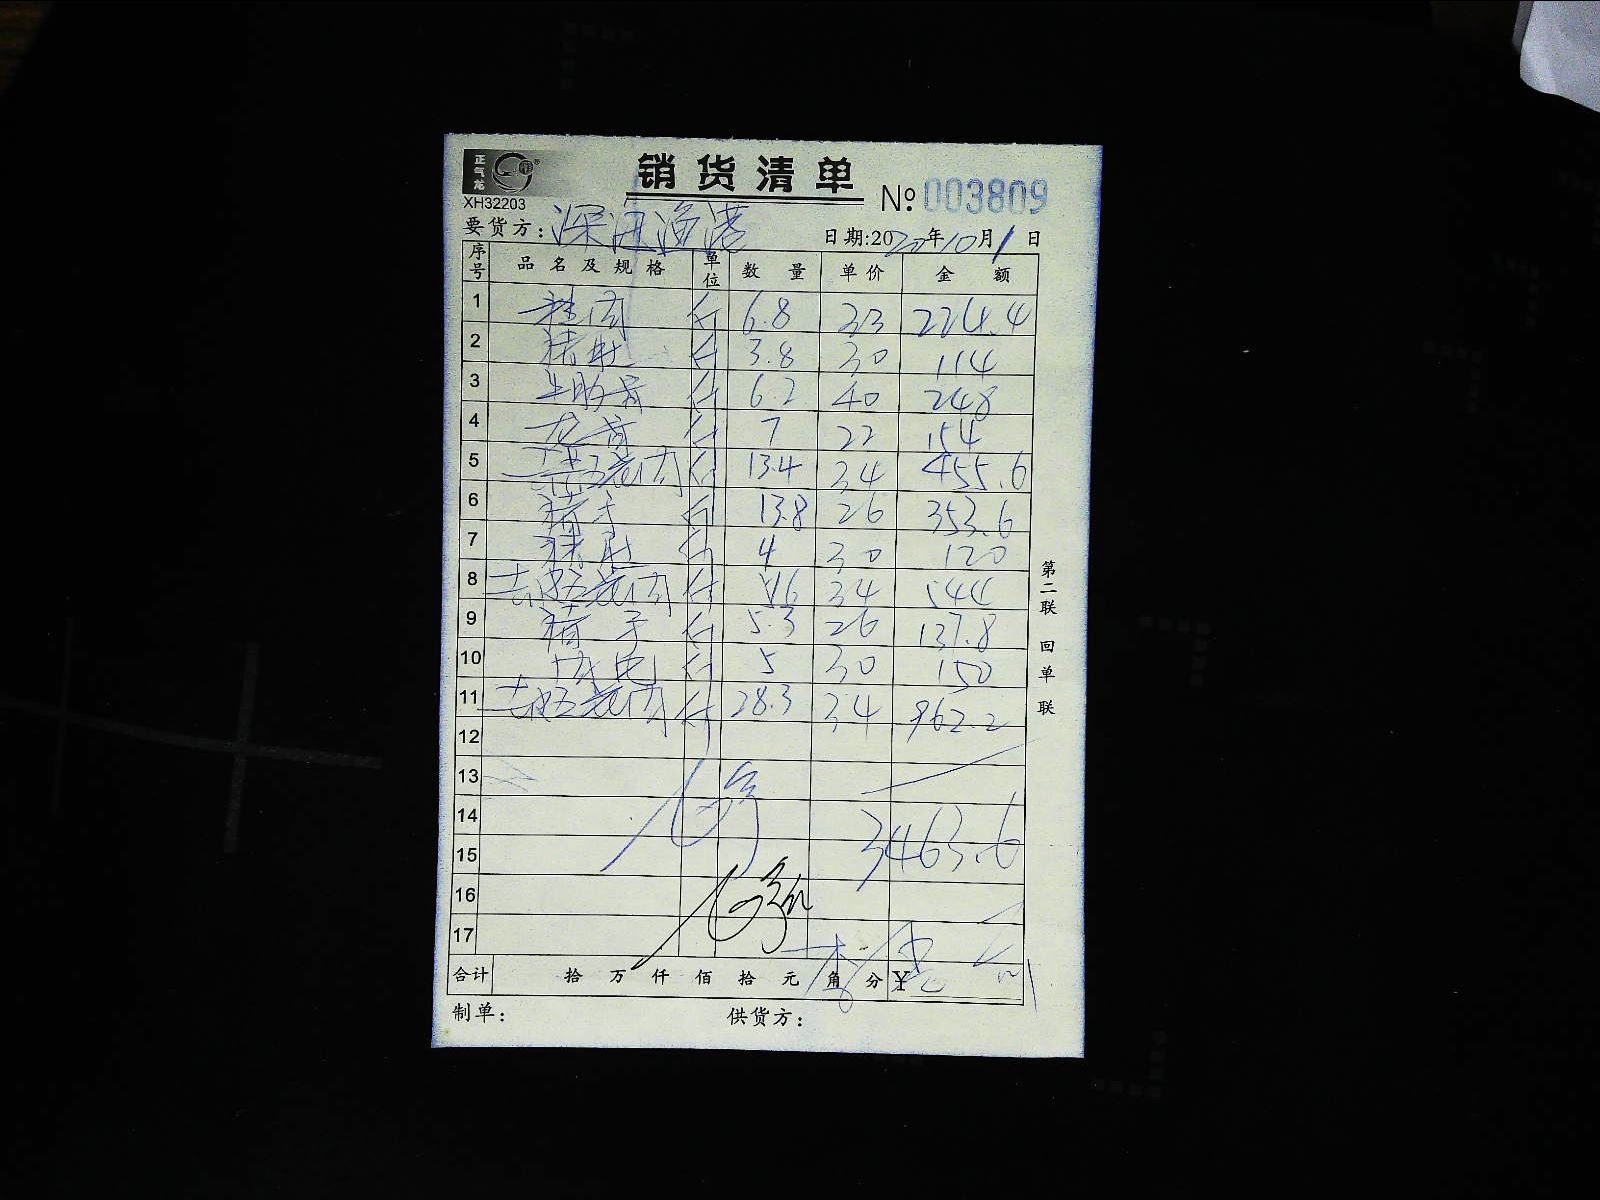 正气龙
XH32203
销货清单
№ 003809
要货方：深井渔港 日期:2020年10月1日
序号 品名及规格 单位 数量 单价 金额
1 斤 6.8 33 224.4
2 猪肚 斤 3.8 30 114
3 斤 6.2 40 248
4 龙骨 斤 7 22 154
5 五花肉 斤 13.4 34 455.6
6 斤 13.8 26 353.6
7 斤 4 30 120
8 去皮五花肉 斤 16 34 544
9 斤 5.3 26 137.8
10 斤 5 30 150
11 去皮五花肉 斤 28.3 34 962.2
12
13
14 3463.6
15
16
17
合计 拾 万 仟 佰 拾 元 角 分 ¥
制单： 供货方：
第二联 回单联